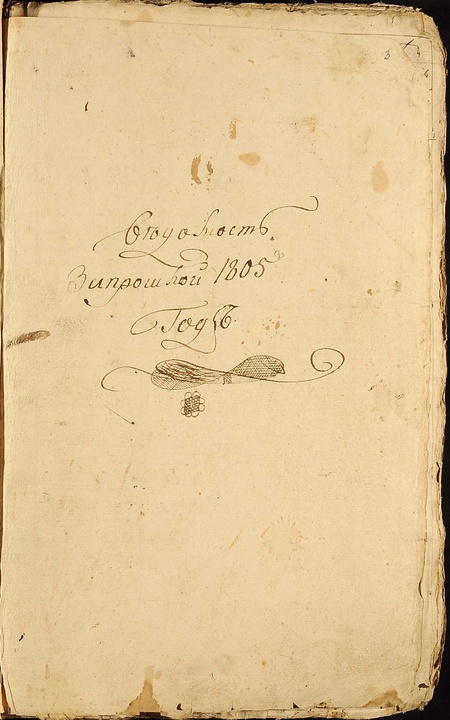 3
Вѣдомость
Запрошлой 1805
Годъ.